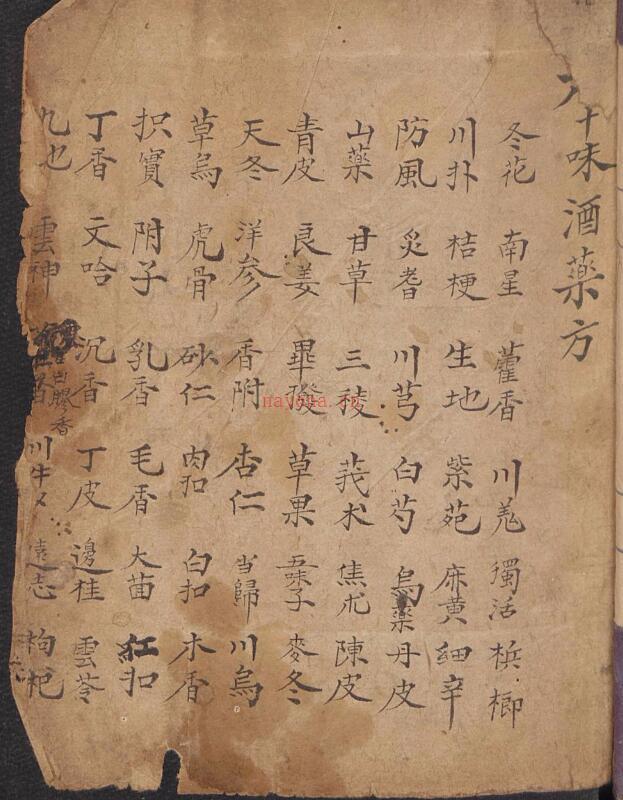 十味酒藥方
冬花 南星 藿香 川羌 獨活 梹榔
川扑 桔梗 生地 紫苑 麻黄 細辛
防風 炙耆 川芎 白芍 烏藥 丹皮
山藥 甘草 三稜 莪术 焦朮 陳皮
青皮 良姜 畢撥 草果 五味子 麥冬
天冬 洋参 香附 杏仁 当歸 川烏
草烏 虎骨 砂仁 肉扣 白扣 木香
枳實 附子 乳香 毛香 大茴 紅扣
丁香 文哈 沉香 丁皮 邊桂 雲苓
白膠香
九也 雲神 川牛 遠志 枸杞
nayona.cn